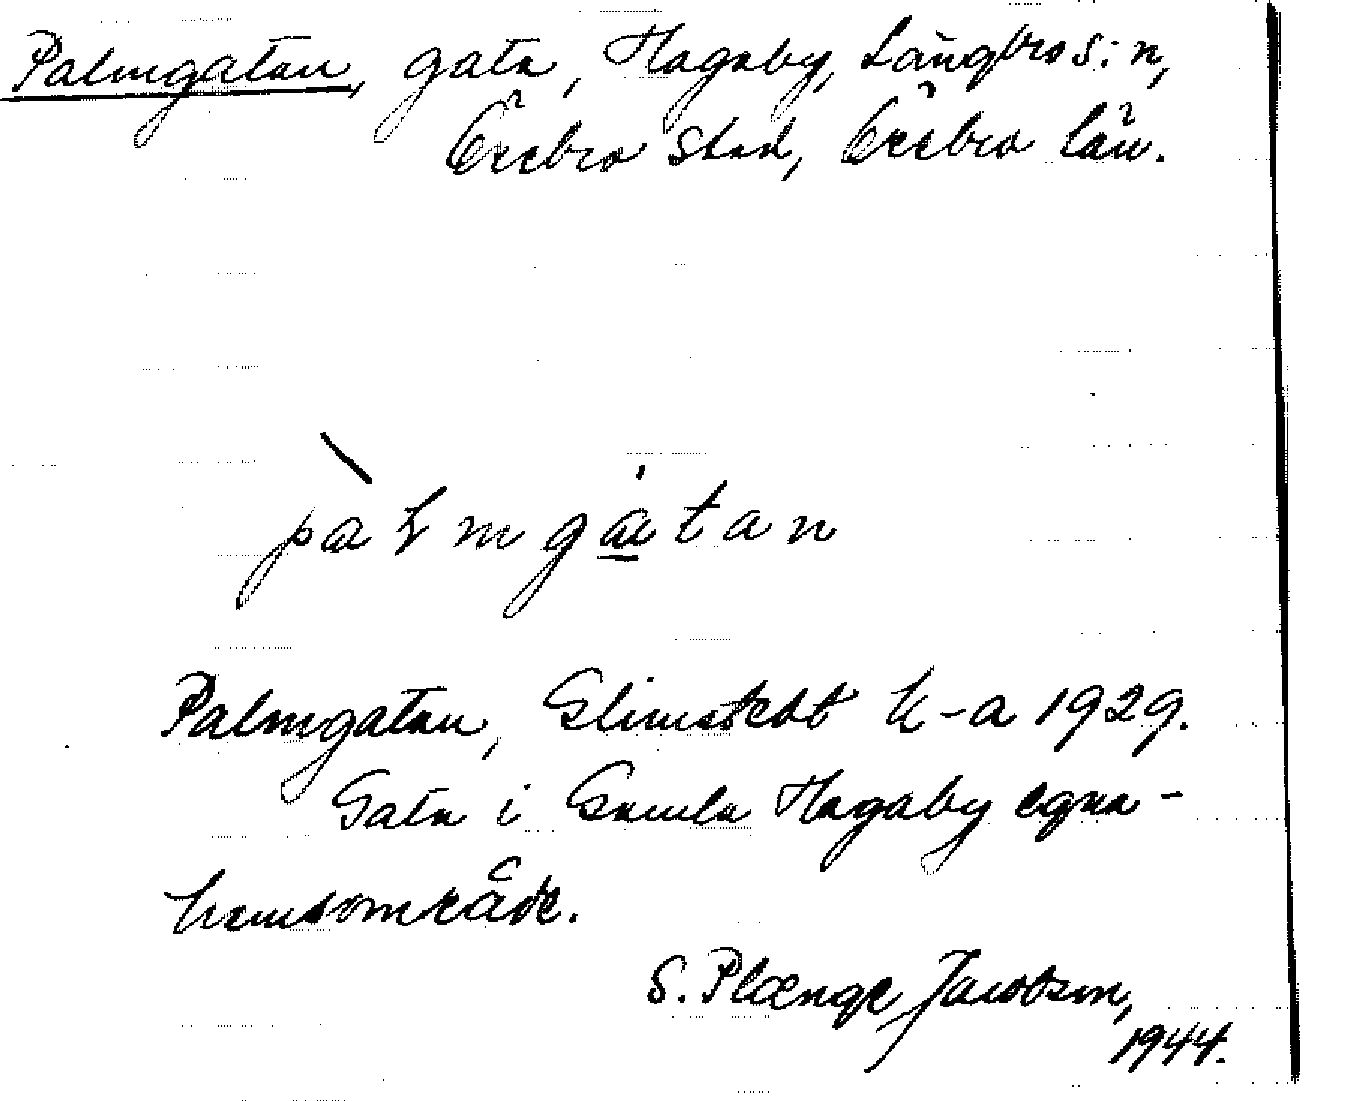 Palmgatan, gata, Hagaby, Längbro s:n,
Örebro stad, Örebro län.
pàlmga̱tan
Palmgatan, Glimstedt k-a 1929.
Gata i Gamla Hagaby egna-
hemsområde.
S. Plænge Jacobson,
1944.